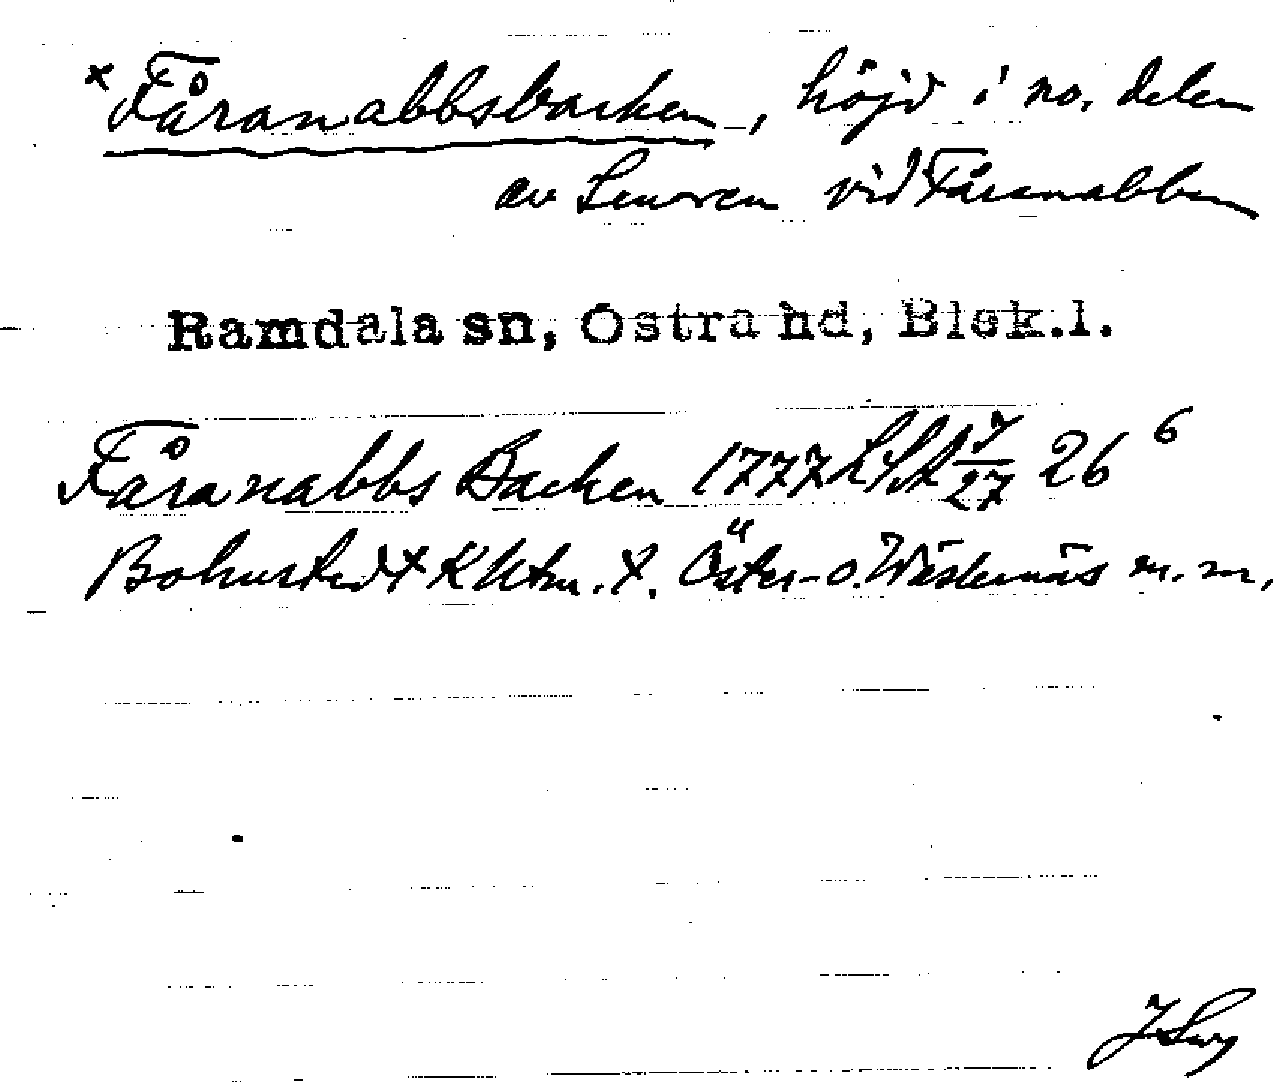 × Fåranabbsbacken, höjd i no. delen
av Senoren vid Fåranabben
Ramdala sn, Östra hd, Blek.l.
Fåranabbs Backen 1777 LSA 7/27 26⁶
Bohustedt K Utm. X. Öster- o. Wästernäs m.m.